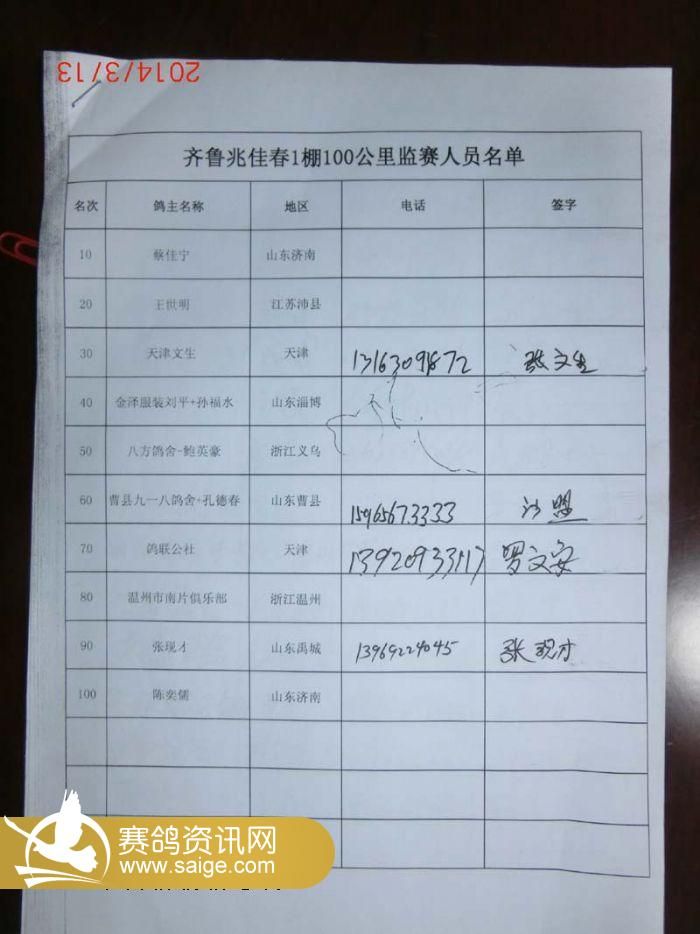 2014/3/13
齐鲁兆佳春1棚100公里监赛人员名单
名次 鸽主名称 地区 电话 签字
10 蔡佳宁 山东济南
20 王世明 江苏沛县
30 天津文生 天津 13163091872 张文生
40 金泽服装刘平+孙福水 山东淄博
50 八方鸽舍-鲍英豪 浙江义乌
60 曹县九一八鸽舍+孔德春 山东曹县 15965673333
70 鸽联公社 天津 罗文安
80 温州市南片俱乐部 浙江温州
90 张现才 山东禹城 13969224045 张现才
100 陈奕儒 山东济南
赛鸽资讯网
www.saige.com